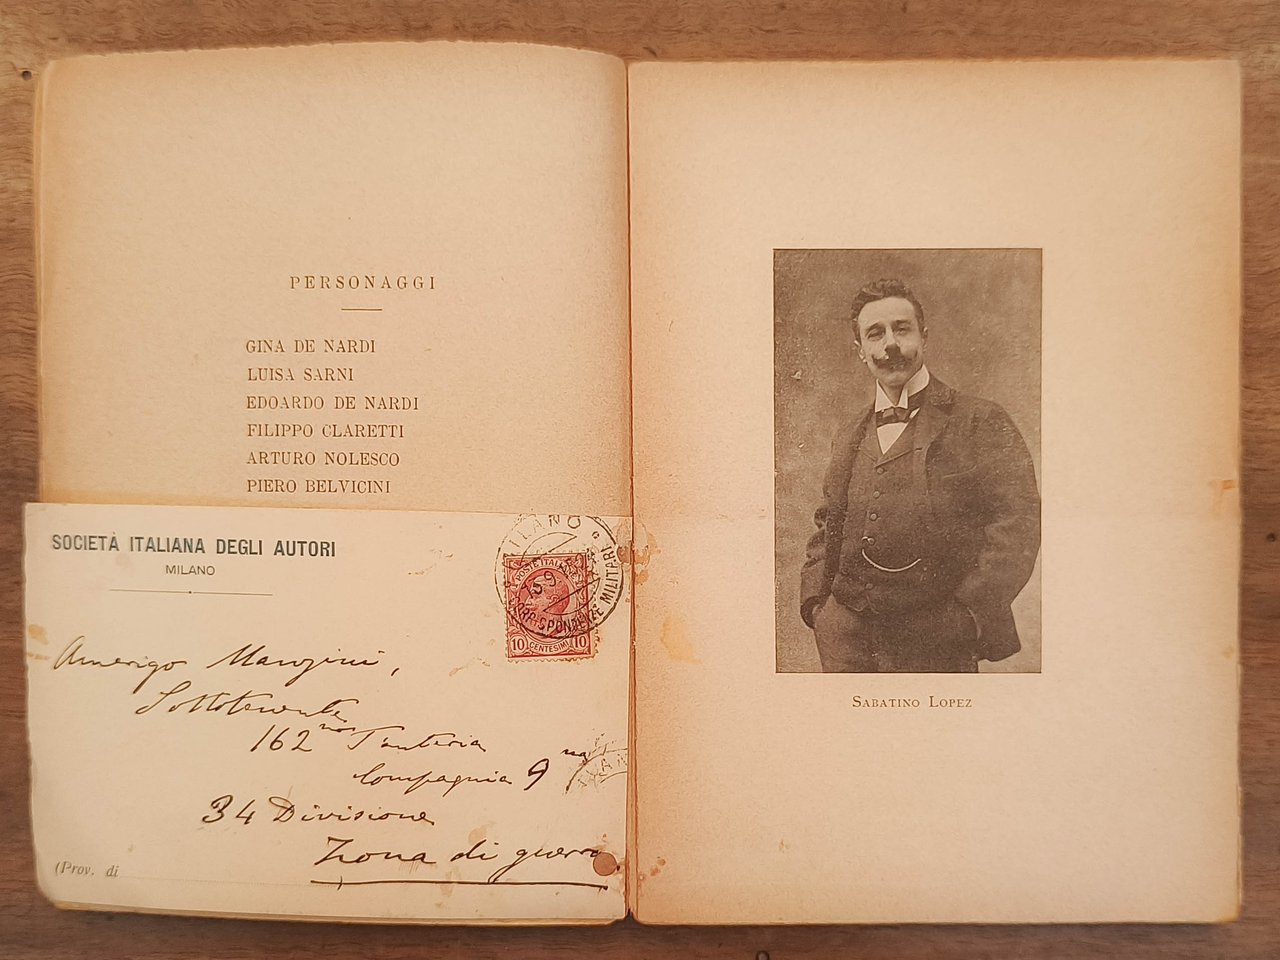 PERSONAGGI
GINA DE NARDI
LUISA SARNI
EDOARDO DE NARDI
FILIPPO CLARETTI
ARTURO NOLESCO
PIERO BELVICINI
SOCIETÀ ITALIANA DEGLI AUTORI
MILANO
MILANO
CORRISPONDENZE MILITARI
POSTE ITALIANE
10 CENTESIMI 10
Amerigo Manzini,
Sottotenente
162 Fanteria
Compagnia 9na
34 Divisione
Zona di guerra
(Prov. di
SABATINO LOPEZ